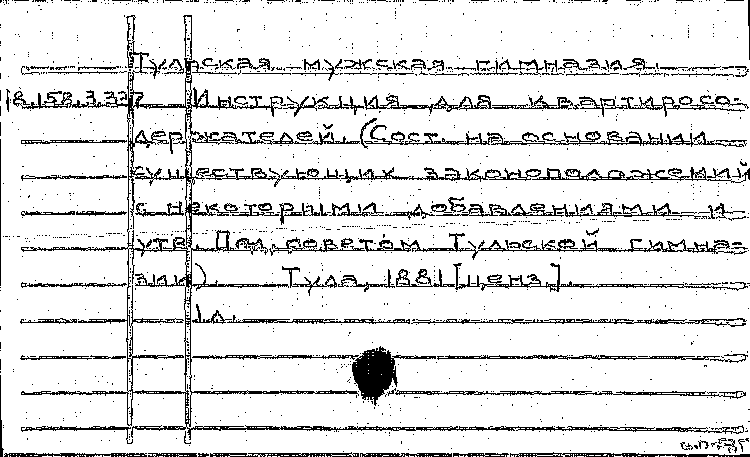 Тульская мужская гимназия.
18.158.3.337 Инструкция для квартиросо-
держателей. (Сост. на основании
существующих законоположений
с некоторыми добавлениями и
утв. Пед. советом Тульской гимна-
зии). Тула, 1881 [ценз.].
1 л.